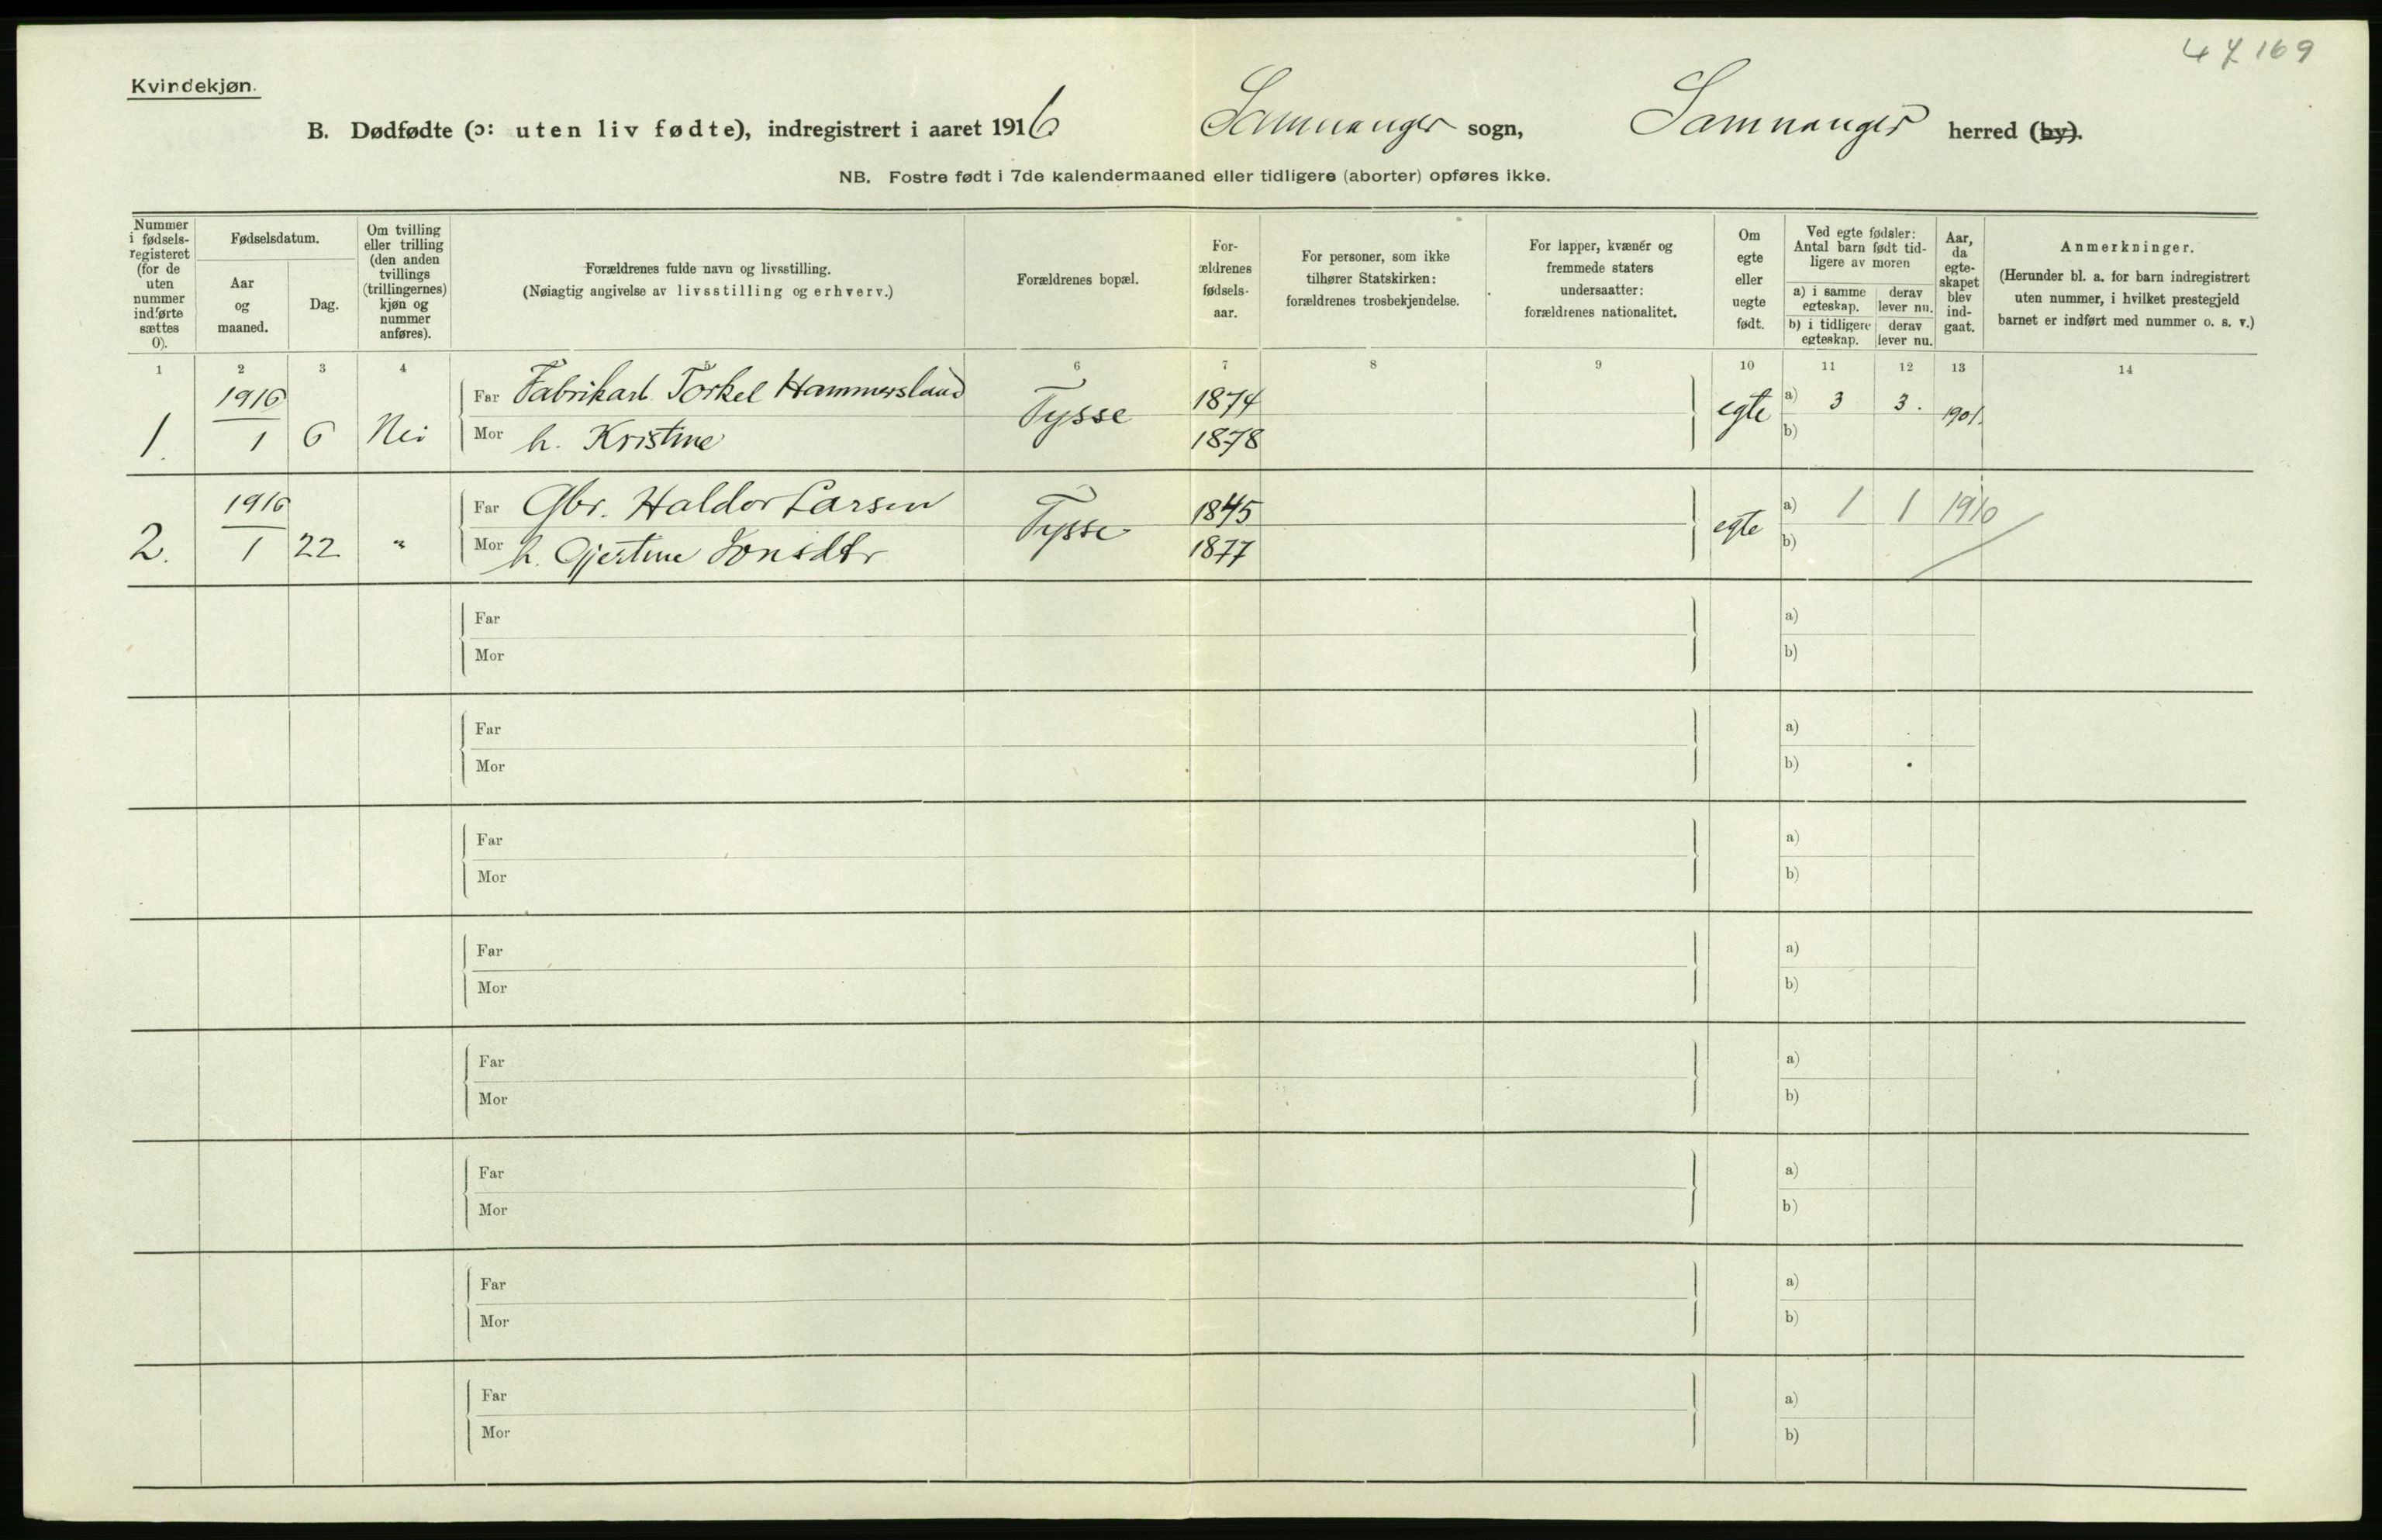 47169
Kvindekjøn.
B. Dødfødte (ɔ: uten liv fødte), indregistrert i aaret 1916 Samnanger sogn, Samnanger herred (by).
NB. Fostre født i 7de kalendermaaned eller tidligere (aborter) opføres ikke.
Nummer
i fødsels-
registeret
(for de
uten
nummer
indførte
sættes
0).
Fødselsdatum.
Aar
og
maaned.
Dag.
Om tvilling
eller trilling
(den anden
tvillings
(trillingernes)
kjøn og
nummer
anføres).
Forældrenes fulde navn og livsstilling.
(Nøiagtig angivelse av livsstilling og erhverv.)
Forældrenes bopæl.
For-
ældrenes
fødsels-
aar.
For personer, som ikke
tilhører Statskirken:
forældrenes trosbekjendelse.
For lapper, kvæner og
fremmede staters
undersaatter:
forældrenes nationalitet.
Om
egte
eller
uegte
født.
Ved egte fødsler:
Antal barn født tid-
ligere av moren
a) i samme
egteskap.
derav
lever nu.
b) i tidligere
egteskap.
derav
lever nu.
Aar,
da
egte-
skapet
blev
ind-
gaat.
Anmerkninger.
(Herunder bl. a. for barn indregistrert
uten nummer, i hvilket prestegjeld
barnet er indført med nummer o. s. v.)
1 2 3 4 5 6 7 8 9 10 11 12 13 14
1. 1916 1 6 Nei Far Fabrikarb. Torkel Hammersland Tysse 1874 egte a) 3 3. 1901.
Mor h. Kristine 1878 b)
2. 1916 1 22 " Far Gbr. Haldor Larsen Tysse 1845 egte a) 1 1 1910
Mor h. Gjertine Jonsdtr 1877 b)
Far a)
Mor b)
Far a)
Mor b)
Far a)
Mor b)
Far a)
Mor b)
Far a)
Mor b)
Far a)
Mor b)
Far a)
Mor b)
Far a)
Mor b)